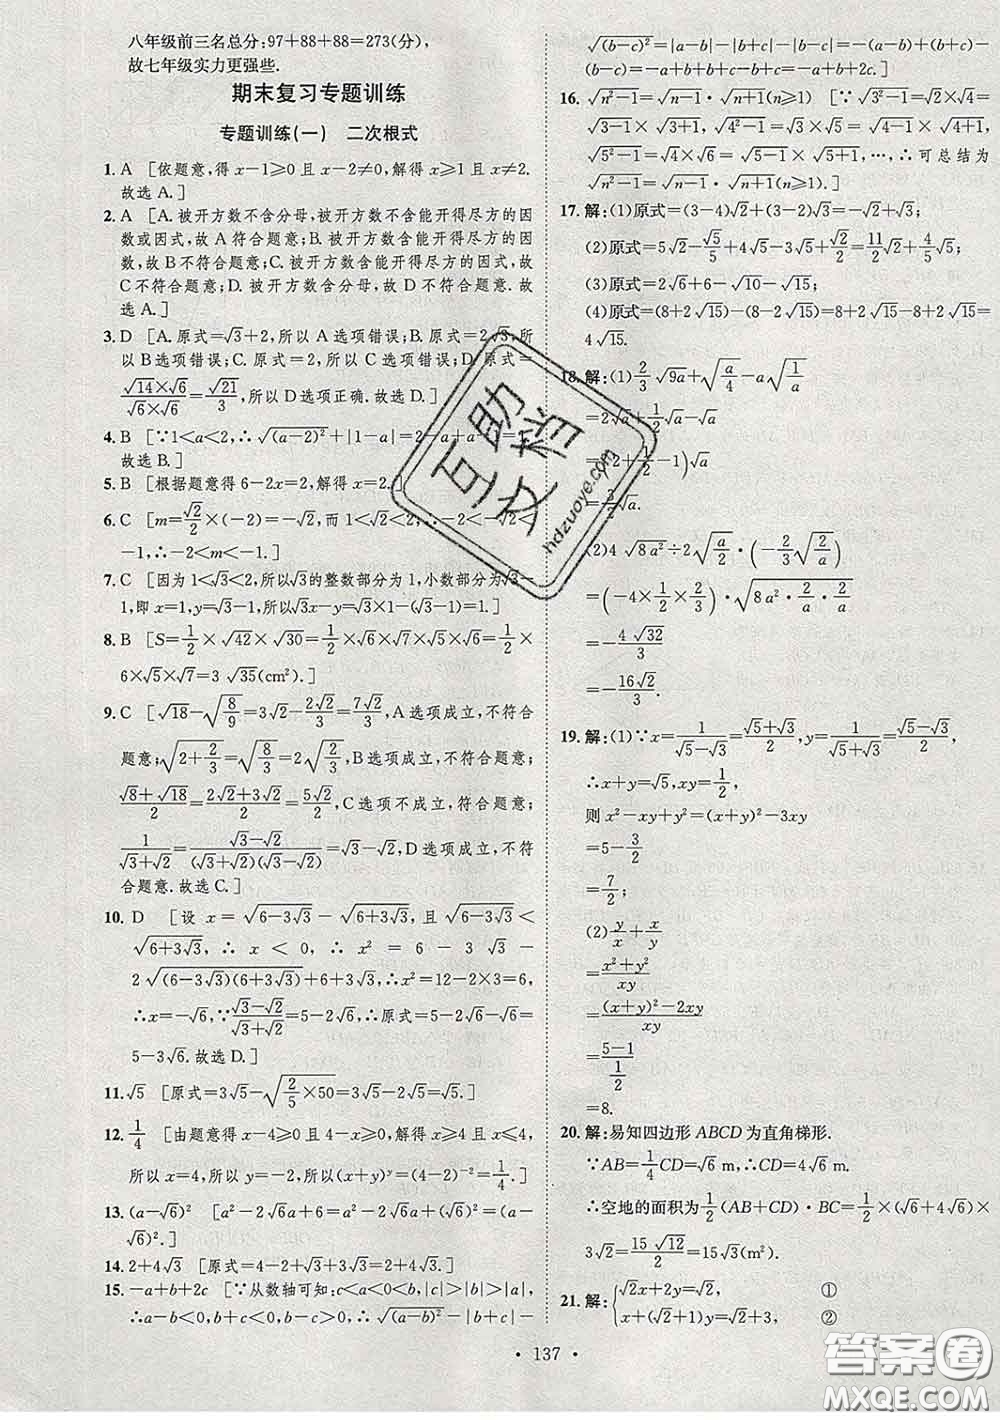 八年级前三名总分:97+88+88=273(分),
故七年级实力更强些.
期末复习专题训练
专题训练(一) 二次根式
1. A [依题意,得 x-1≥0 且 x-2≠0,解得 x≥1 且 x≠2.
故选 A.]
2. A [A. 被开方数不含分母,被开方数不含能开得尽方的因
数或因式,故 A 符合题意;B. 被开方数含能开得尽方的因
数,故 B 不符合题意;C. 被开方数含能开得尽方的因式,故
C 不符合题意;D. 被开方数含分母,故 D 不符合题意.故
选 A.]
3. D [A. 原式=√3+2,所以 A 选项错误;B. 原式=2√3,所
以 B 选项错误;C. 原式=2,所以 C 选项错误;D. 原式=
(√14×√6)/(√6×√6)=√21/3,所以 D 选项正确.故选 D.]
4. B [∵1<a<2,∴√((a-2)²)+|1-a|=2-a+a-1=1.
故选 B.]
5. B [根据题意得 6-2x=2,解得 x=2.]
6. C [m=√2/2×(-2)=-√2,而 1<√2<2,∴-2<-√2<
-1,∴-2<m<-1.]
7. C [因为 1<√3<2,所以√3的整数部分为 1,小数部分为√3-
1,即 x=1,y=√3-1,所以√3x-y=√3×1-(√3-1)=1.]
8. B [S=1/2×√42×√30=1/2×√6×√7×√5×√6=1/2×
6×√5×√7=3√35(cm²).]
9. C [√18-√(8/9)=3√2-2√2/3=7√2/3,A 选项成立,不符合
题意;√(2+2/3)=√(8/3)=2√(2/3),B 选项成立,不符合题意;
(√8+√18)/2=(2√2+3√2)/2=5√2/2,C 选项不成立,符合题意;
1/(√3+√2)=(√3-√2)/((√3+√2)(√3-√2))=√3-√2,D 选项成立,不符
合题意.故选 C.]
10. D [设 x=√(6-3√3)-√(6+3√3),且√(6-3√3)<
√(6+3√3),∴x<0,∴x²=6-3√3-
2√((6-3√3)(6+3√3))+6+3√3,∴x²=12-2×3=6,
∴x=-√6,∵(√3-√2)/(√3+√2)=5-2√6,∴原式=5-2√6-√6=
5-3√6.故选 D.]
11. √5 [原式=3√5-√(2/5×50)=3√5-2√5=√5.]
12. 1/4 [由题意得 x-4≥0 且 4-x≥0,解得 x≥4 且 x≤4,
所以 x=4,所以 y=2,所以(x-y)^y=(4-2)^-2=1/4.]
13. (a-√6)² [a²-2√6a+6=a²-2√6a+(√6)²=(a-
√6)².]
14. 2+4√3 [原式=4-2+√3+3√3=2+4√3.]
15. -a+b+2c [∵从数轴可知:c<a<0<b,|c|>|b|>|a|,
∴a-b<0,b+c<0,b-c>0,∴√((a-b)²)-|b+c|+
√((b-c)²)=|a-b|-|b+c|+|b-c|=-(a-b)+
(b+c)+(b-c)=-a+b+b+c+b-c
16. √(n²-1)=√(n-1)·√(n+1)(n≥1) [∵√(3²-1)=√2×√4=
√(3-1)×√(3+1),√(4²-1)=√3×√5=√(4-1)×√(4+1),
√(5²-1)=√4×√6=√(5-1)×√(5+1),…,∴可总结为
√(n²-1)=√(n-1)·√(n+1)(n≥1).]
17. 解:(1)原式=(3-4)√2+(3-2)√3=-√2+√3;
(2)原式=5√2-√5/5+4√5-3√5+√2/2=11/2√2+4/5√5;
(3)原式=2√6+6-√10-√15;
(4)原式=(8+2√15)-(8-2√15)=8+2√15-8+2√15=
4√15.
18. 解:(1)2/3√(9a)+√(a/4)-a√(1/a)
=2√a+1/2√a-√a
=(2+1/2-1)√a
=3/2√a.
(2)4√(8a²)÷2√(a/2)·(-2/3√(2/a))
=(-4×1/2×2/3)·√(8a²·2/a·2/a)
=-4√32/3
=-16√2/3.
19. 解:(1)∵x=1/(√5-√3)=(√5+√3)/2,y=1/(√5+√3)=(√5-√3)/2,
∴x+y=√5,xy=1/2,
则 x²-xy+y²=(x+y)²-3xy
=5-3/2
=7/2;
(2)y/x+x/y
=(x²+y²)/xy
=((x+y)²-2xy)/xy
=(5-1)/(1/2)
=8.
20. 解:易知四边形 ABCD 为直角梯形.
∵AB=1/4CD=√6 m,∴CD=4√6 m.
∴空地的面积为1/2(AB+CD)·BC=1/2×(√6+4√6)×
3√2=15√12/2=15√3(m²).
21. 解:{√2x+2y=√2, ①
x+(√2+4)y=√2+3, ②
• 137 •
互助文档
hdzuoye.com
答案圈
MXQE.COM